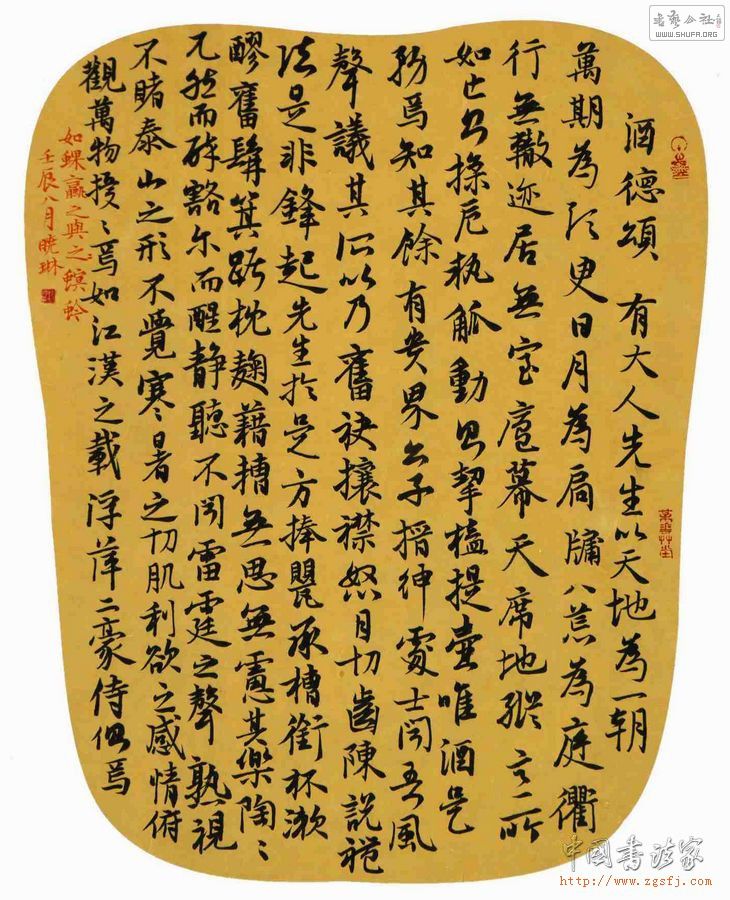 酒德頌 有大人先生以天地為一朝
萬期為須臾日月為扃牖八荒為庭衢
行無轍迹居無室廬幕天席地縱意所
如止則操卮執觚動則挈榼提壺唯酒是
務焉知其餘有貴界公子搢紳處士聞吾風
聲議其所以乃奮袂攘襟怒目切齒陳說禮
法是非鋒起先生於是方捧甖承槽銜杯漱
醪奮髯箕踞枕麴藉糟無思無慮其樂陶〻
兀然而醉豁尔而醒靜聽不聞雷霆之聲熟視
不睹泰山之形不覺寒暑之切肌利欲之感情俯
觀萬物擾〻焉如江漢之載浮萍二豪侍側焉
如蜾蠃之與之螟蛉
壬辰八月曉琳
書藝公社
WWW.SHUFA.ORG
中國書法家
http://www.zgsfj.com